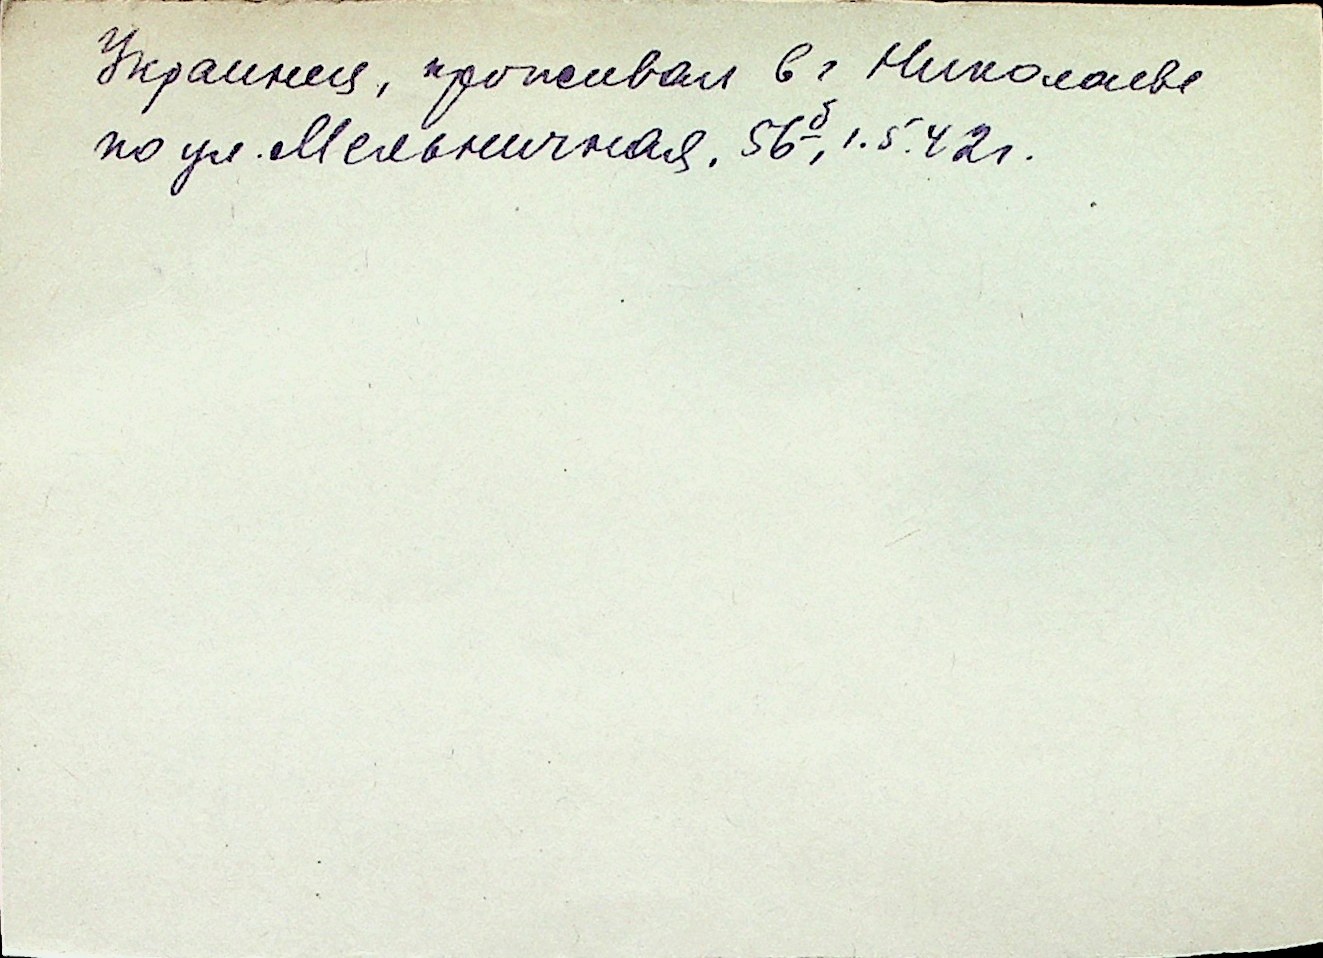 Украинец, проживал в г Николаеве
по ул. Мельничная, 56б, 1.5.42г.